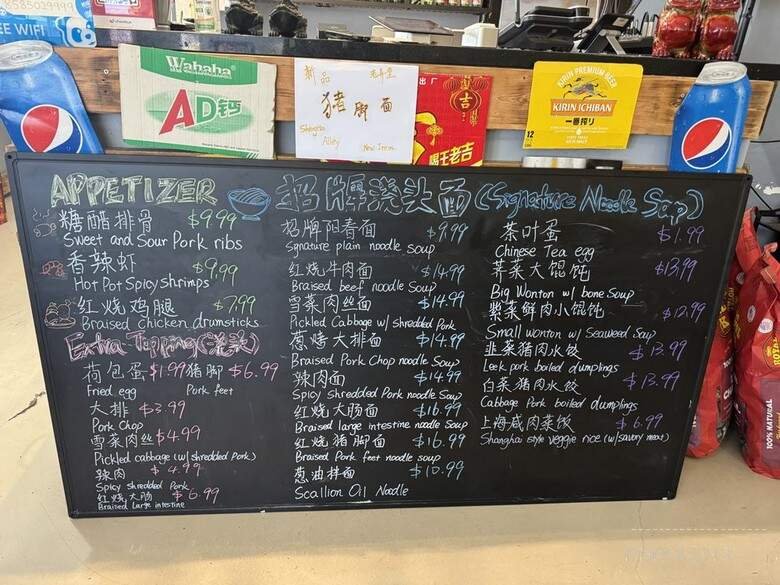 8585029999
FREE WIFI
Wahaha
AD钙
新品 老弄堂
猪脚面
Shanghai Alley New Items
出厂
吉
喝王老吉
KIRIN PREMIUM BEER
KIRIN ICHIBAN
一番搾り
12
pepsi
APPETIZER
糖醋排骨 $9.99
Sweet and Sour Pork ribs
香辣虾 $9.99
Hot Pot Spicy Shrimps
红烧鸡腿 $7.99
Braised Chicken drumsticks
Extra Topping(浇头)
荷包蛋 $1.99 猪脚 $6.99
Fried egg Pork feet
大排 $3.99
Pork Chop
雪菜肉丝 $4.99
Pickled cabbage (w/ shredded Pork)
辣肉 $4.99
Spicy shredded Pork
红烧大肠 $6.99
Braised Large intestine
招牌浇头面 (Signature Noodle Soup)
招牌阳春面 $9.99
Signature plain noodle soup
红烧牛肉面 $14.99
Braised beef noodle Soup
雪菜肉丝面 $14.99
Pickled Cabbage w/ shredded Pork
葱烤大排面 $14.99
Braised Pork Chop noodle Soup
辣肉面 $14.99
Spicy shredded Pork noodle Soup
红烧大肠面 $16.99
Braised large intestine noodle Soup
红烧猪脚面 $16.99
Braised Pork feet noodle soup
葱油拌面 $10.99
Scallion Oil Noodle
茶叶蛋 $1.99
Chinese Tea egg
荠菜大馄饨 $13.99
Big Wonton w/ bone Soup
紫菜鲜肉小馄饨 $12.99
Small wonton w/ Seaweed Soup
韭菜猪肉水饺 $13.99
Leek pork boiled dumplings
白菜猪肉水饺 $13.99
Cabbage Pork boiled dumplings
上海咸肉菜饭 $6.99
Shanghai style veggie rice (w/ savory meat)
ROYAL
100% NATURAL